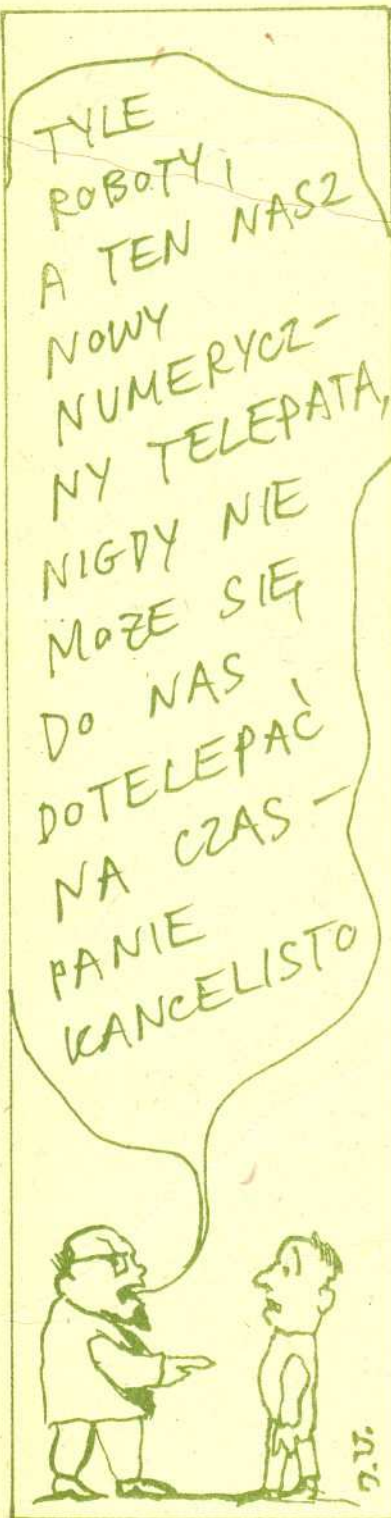 TYLE
ROBOTY,
A TEN NASZ
NOWY
NUMERYCZ-
NY TELEPATA,
NIGDY NIE
MOŻE SIĘ
DO NAS
DOTELEPAĆ
NA CZAS -
PANIE
KANCELISTO
J.U.